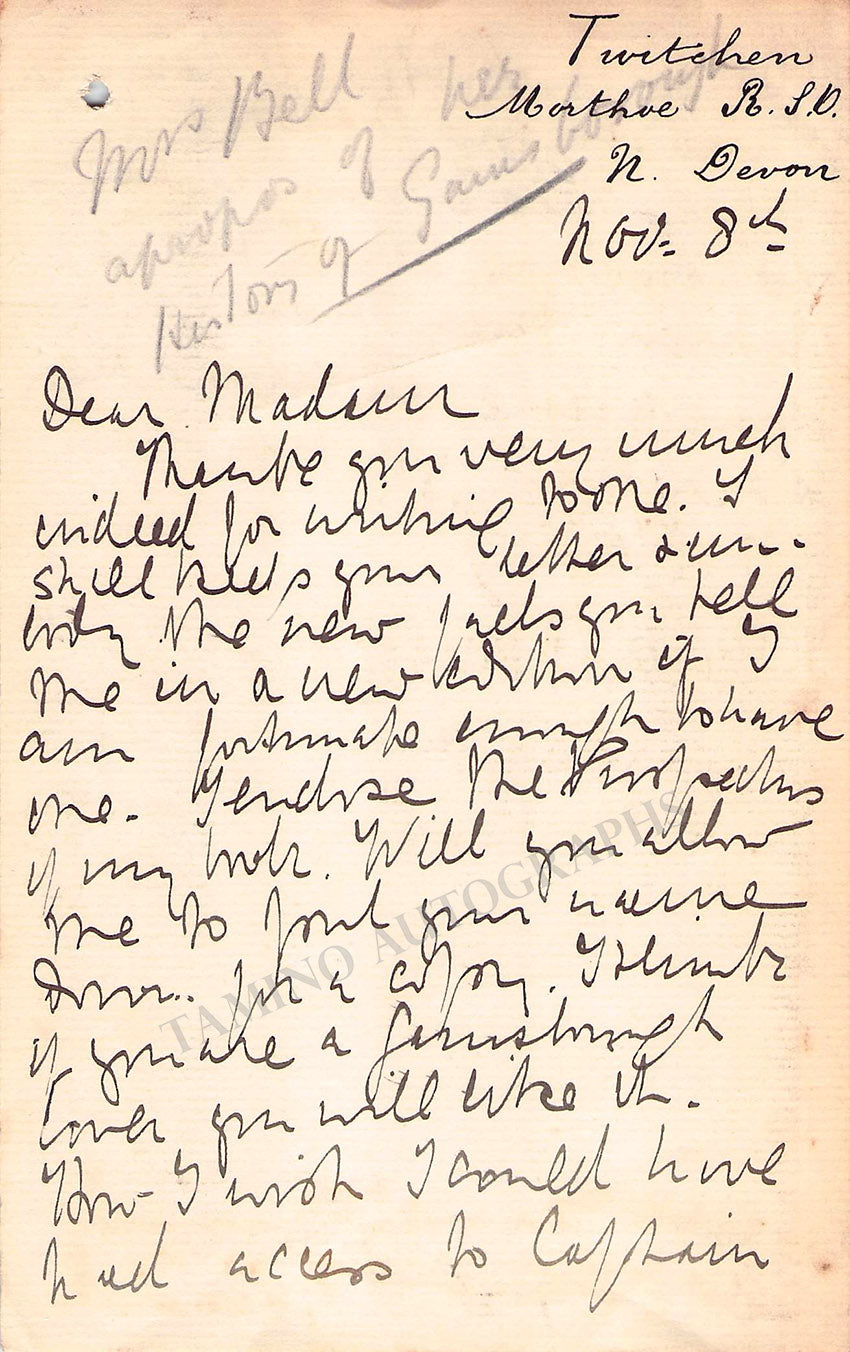 Twitchen
Morthoe R.S.O.
N. Devon
Nov. 8th
Mrs Bell
apropos of her
History of Gainsborough
Dear Madam
Thank you very much
indeed for writing to me. I
shall keep your letter & em-
body the new facts you tell
me in a new edition if I
am fortunate enough to have
one. I enclose the Prospectus
of my book. Will you allow
me to put your name
down for a copy. I think
if you are a Gainsborough
lover you will like it.
How I wish I could have
had access to Captain
TAMINO AUTOGRAPHS